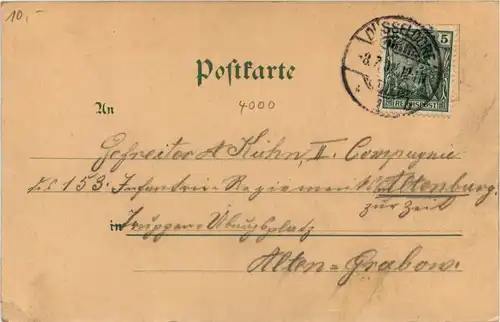 10,-
DÜSSELDORF
5
REICHSPOST
Postkarte
4000
An
Gefreiter A Kuhn, II. Compagnie
153. Infanterie Regiment Altenburg.
zur Zeit
in Truppen Übungsplatz
Alten=Grabow.